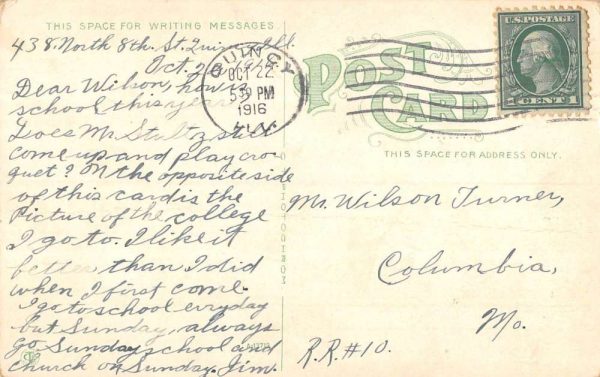 THIS SPACE FOR WRITING MESSAGES.
438 North 8th. St. Quincy Ill.
Oct. 2
Dear Wilson, how is
school this year?
Does Mr. Stultz still
come up and play cro-
quet? On the opposite side
of this card is the
Picture of the college
I go to. I like it
better than I did
when I first come.
I go to school erryday
but Sunday, always
go Sunday school and
church on Sunday. Jim.
QUINCY
OCT 22
5 30 PM
1916
ILL.
POST
CARD
U.S. POSTAGE
1 CENT 1
THIS SPACE FOR ADDRESS ONLY.
Mr. Wilson Turner,
Columbia,
Mo.
R.R. #10.